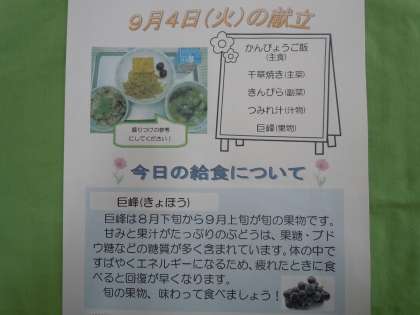 9月4日(火)の献立
かんぴょうご飯
(主食)
千草焼き(主菜)
きんぴら(副菜)
つみれ汁(汁物)
巨峰(果物)
盛りつけの参考
にしてください!
今日の給食について
巨峰(きょほう)
巨峰は8月下旬から9月上旬が旬の果物です。
甘みと果汁がたっぷりのぶどうは、果糖・ブド
ウ糖などの糖質が多く含まれています。体の中で
すばやくエネルギーになるため、疲れたときに食
べると回復が早くなります。
旬の果物、味わって食べましょう!